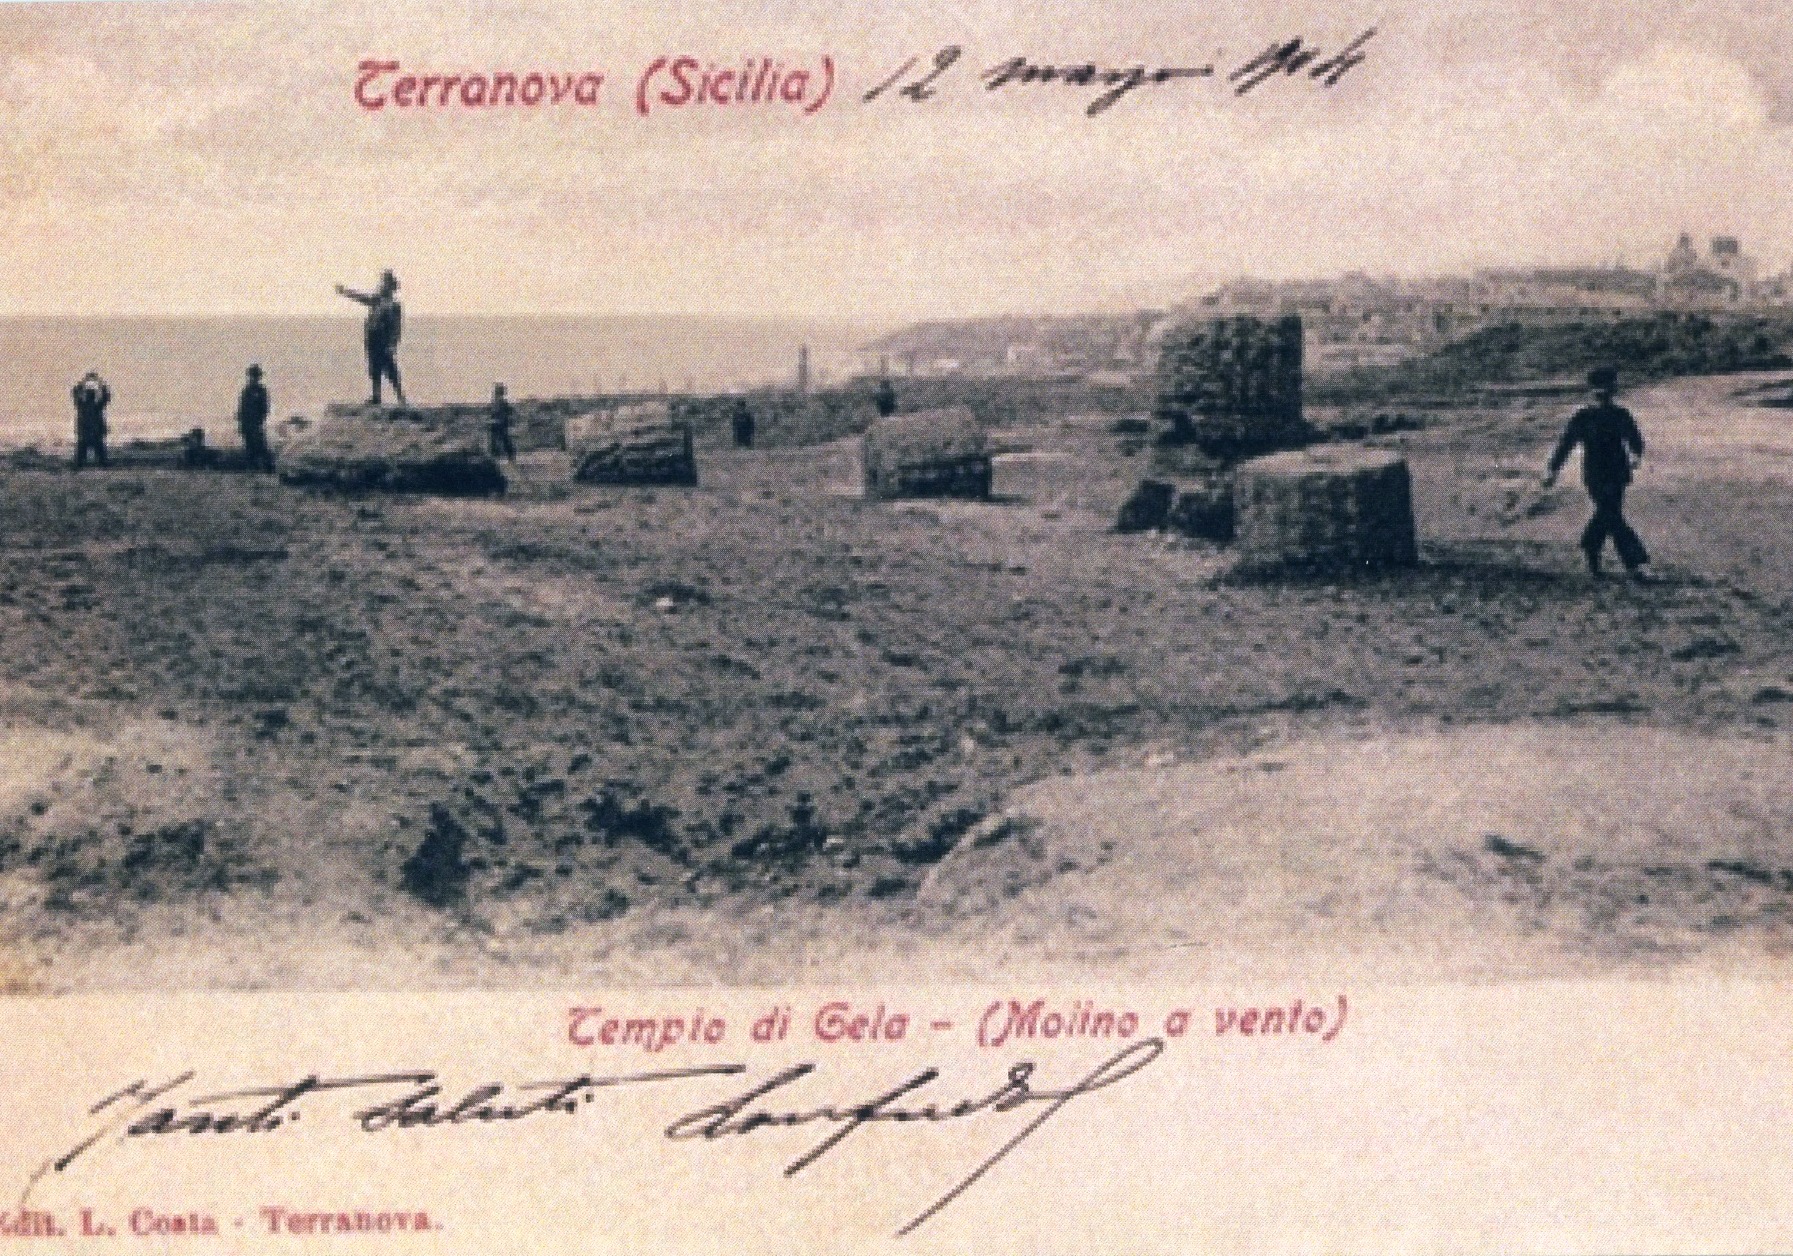 Terranova (Sicilia) 12 maggio 1904
Tempio di Gela - (Molino a vento)
Tanti saluti
Edit. L. Costa - Terranova.